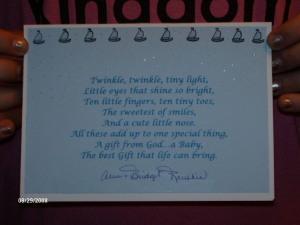 Kingdom
Twinkle, twinkle, tiny light,
Little eyes that shine so bright,
Ten little fingers, ten tiny toes,
The sweetest of smiles,
And a cute little nose.
All these add up to one special thing,
A gift from God...a Baby,
The best Gift that life can bring.
08/29/2008